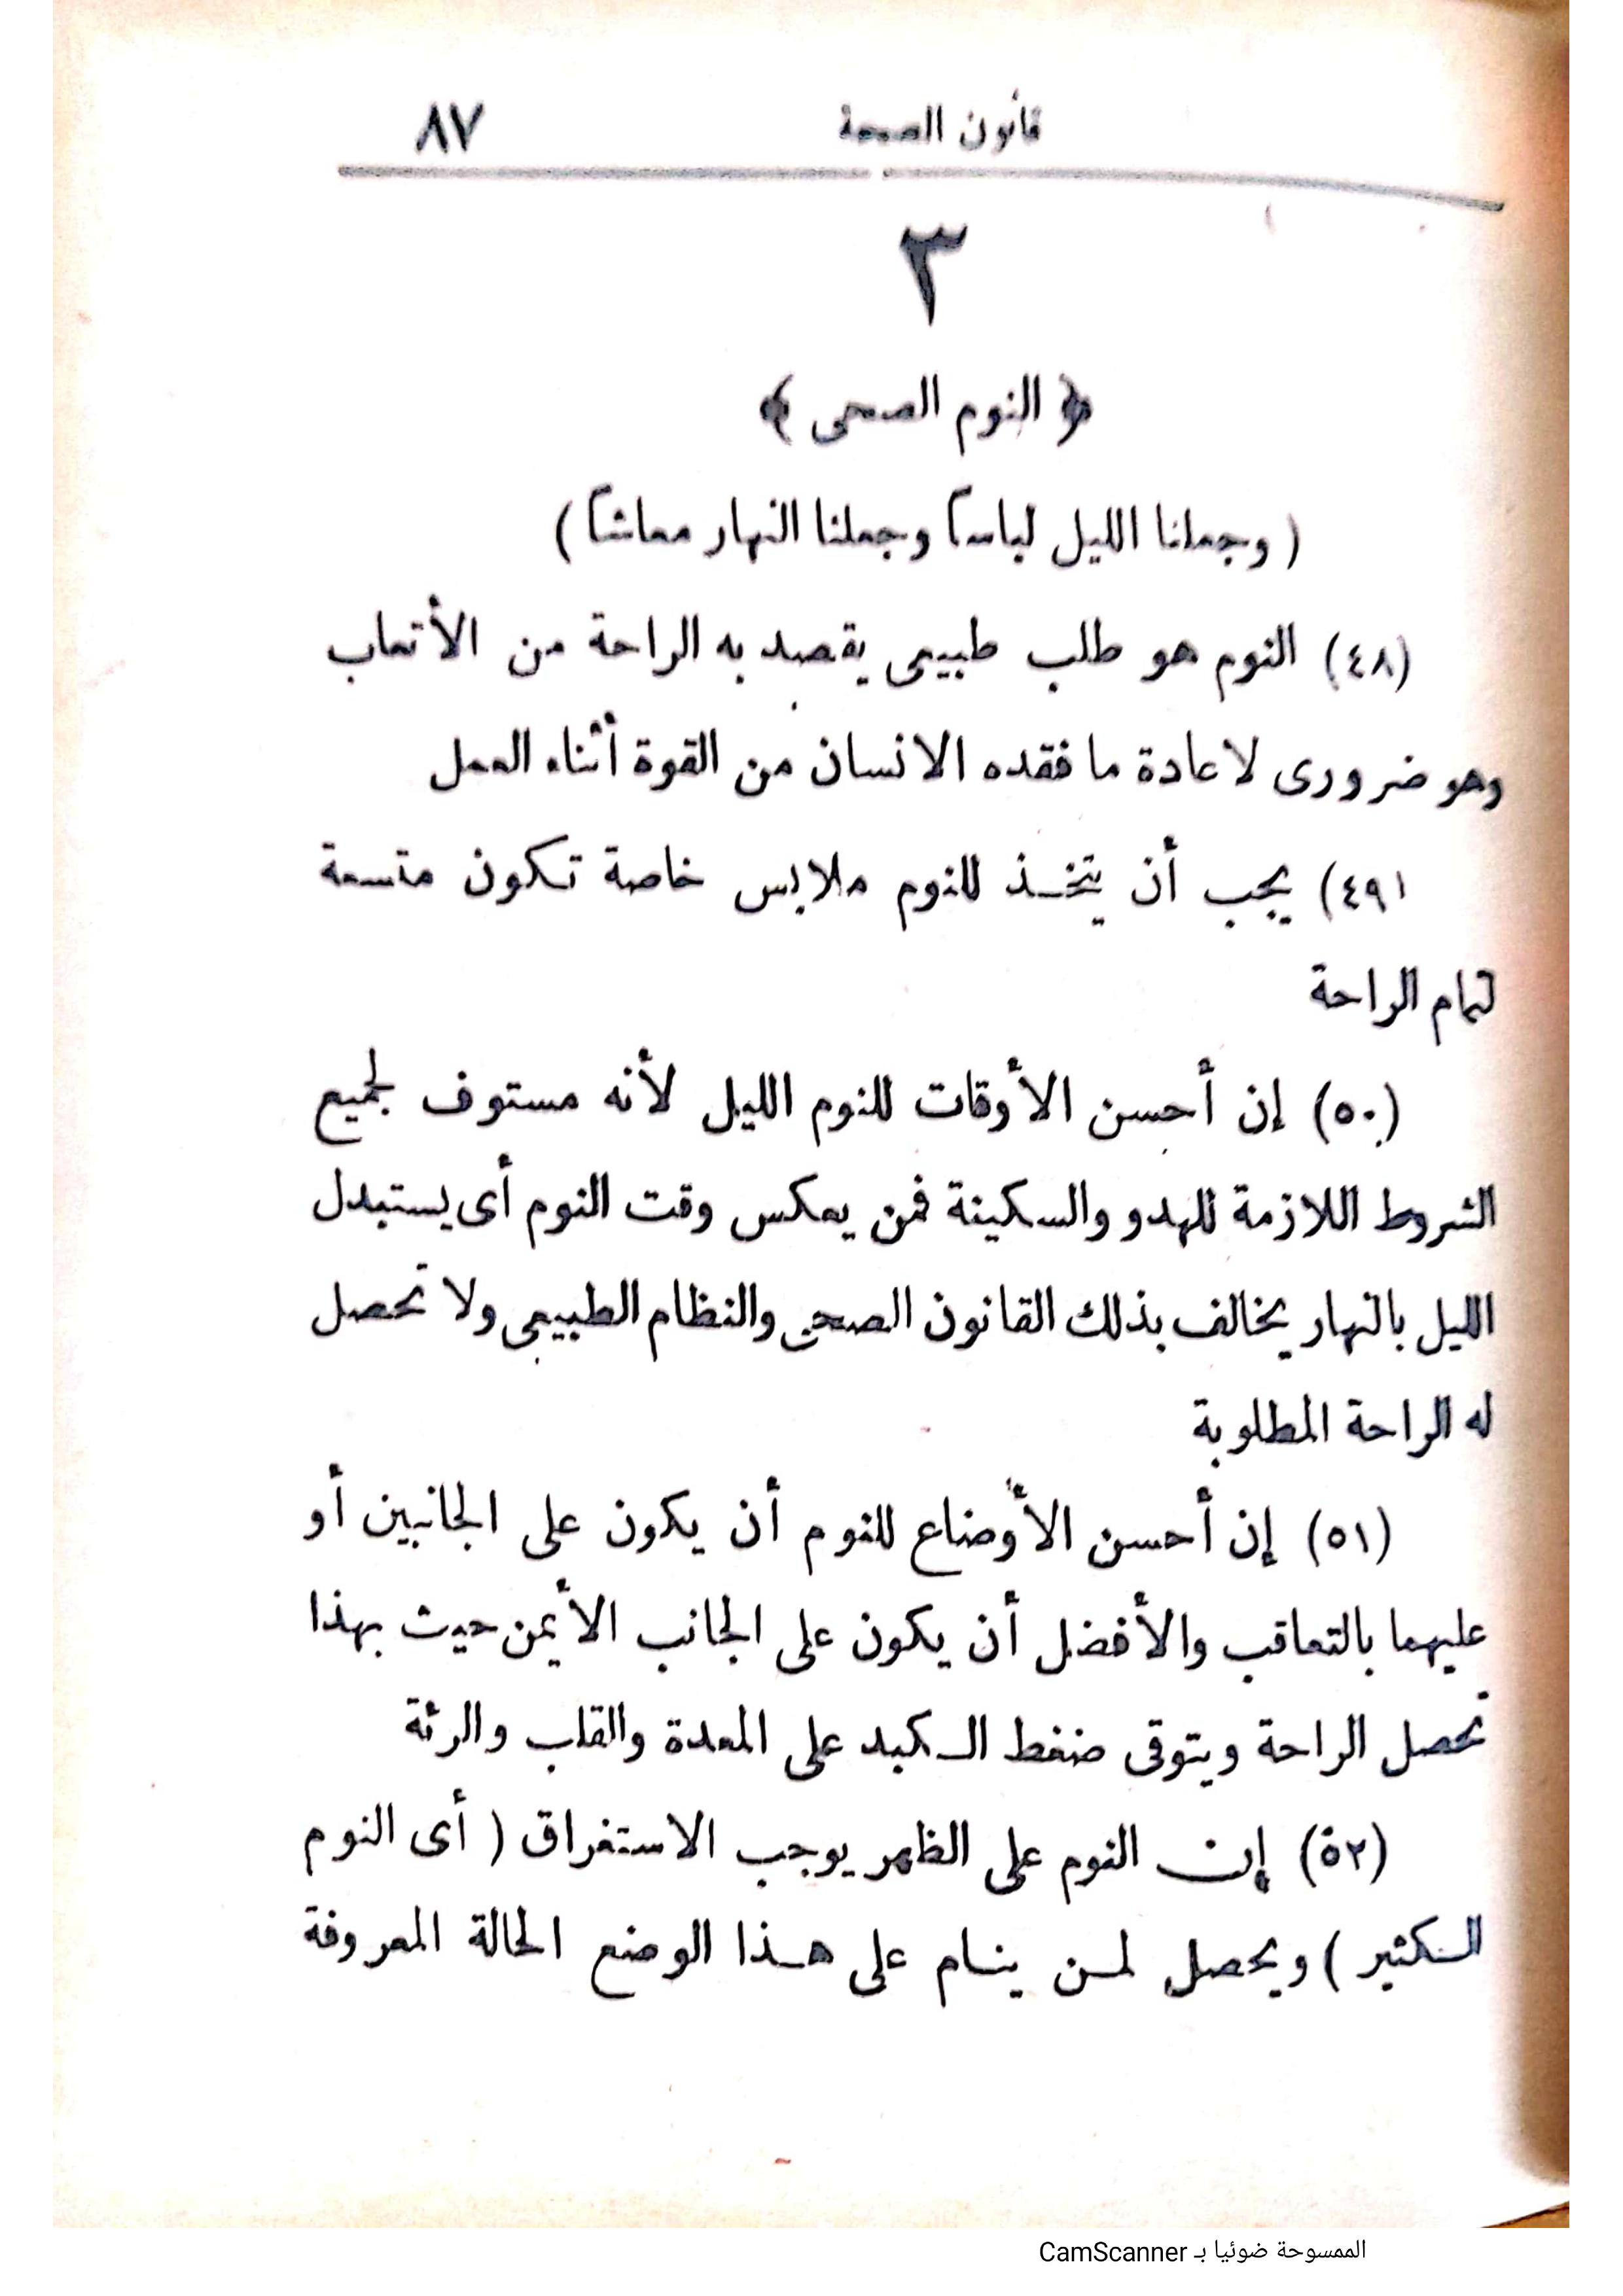 قانون الصحة ٨٧
٣
﴿ النوم الصحى ﴾
( وجعلنا الليل لباساً وجعلنا النهار معاشاً )
(٤٨) النوم هو طلب طبيعى يقصد به الراحة من الأتعاب
وهو ضرورى لاعادة ما فقده الانسان من القوة أثناء العمل
٤٩) يجب أن يتخذ للنوم ملابس خاصة تكون متسعة
لتمام الراحة
(٥٠) إن أحسن الأوقات للنوم الليل لأنه مستوف لجميع
الشروط اللازمة للهدو والسكينة فمن يعكس وقت النوم أى يستبدل
الليل بالنهار يخالف بذلك القانون الصحى والنظام الطبيعى ولا تحصل
له الراحة المطلوبة
(٥١) إن أحسن الأوضاع للنوم أن يكون على الجانبين أو
عليهما بالتعاقب والأفضل أن يكون على الجانب الأيمن حيث بهذا
تحصل الراحة ويتوقى ضغط الكبد على المعدة والقلب والرئة
(٥٢) إن النوم على الظهر يوجب الاستغراق ( أى النوم
الكثير ) ويحصل لمن ينام على هذا الوضع الحالة المعروفة
الممسوحة ضوئيا بـ CamScanner